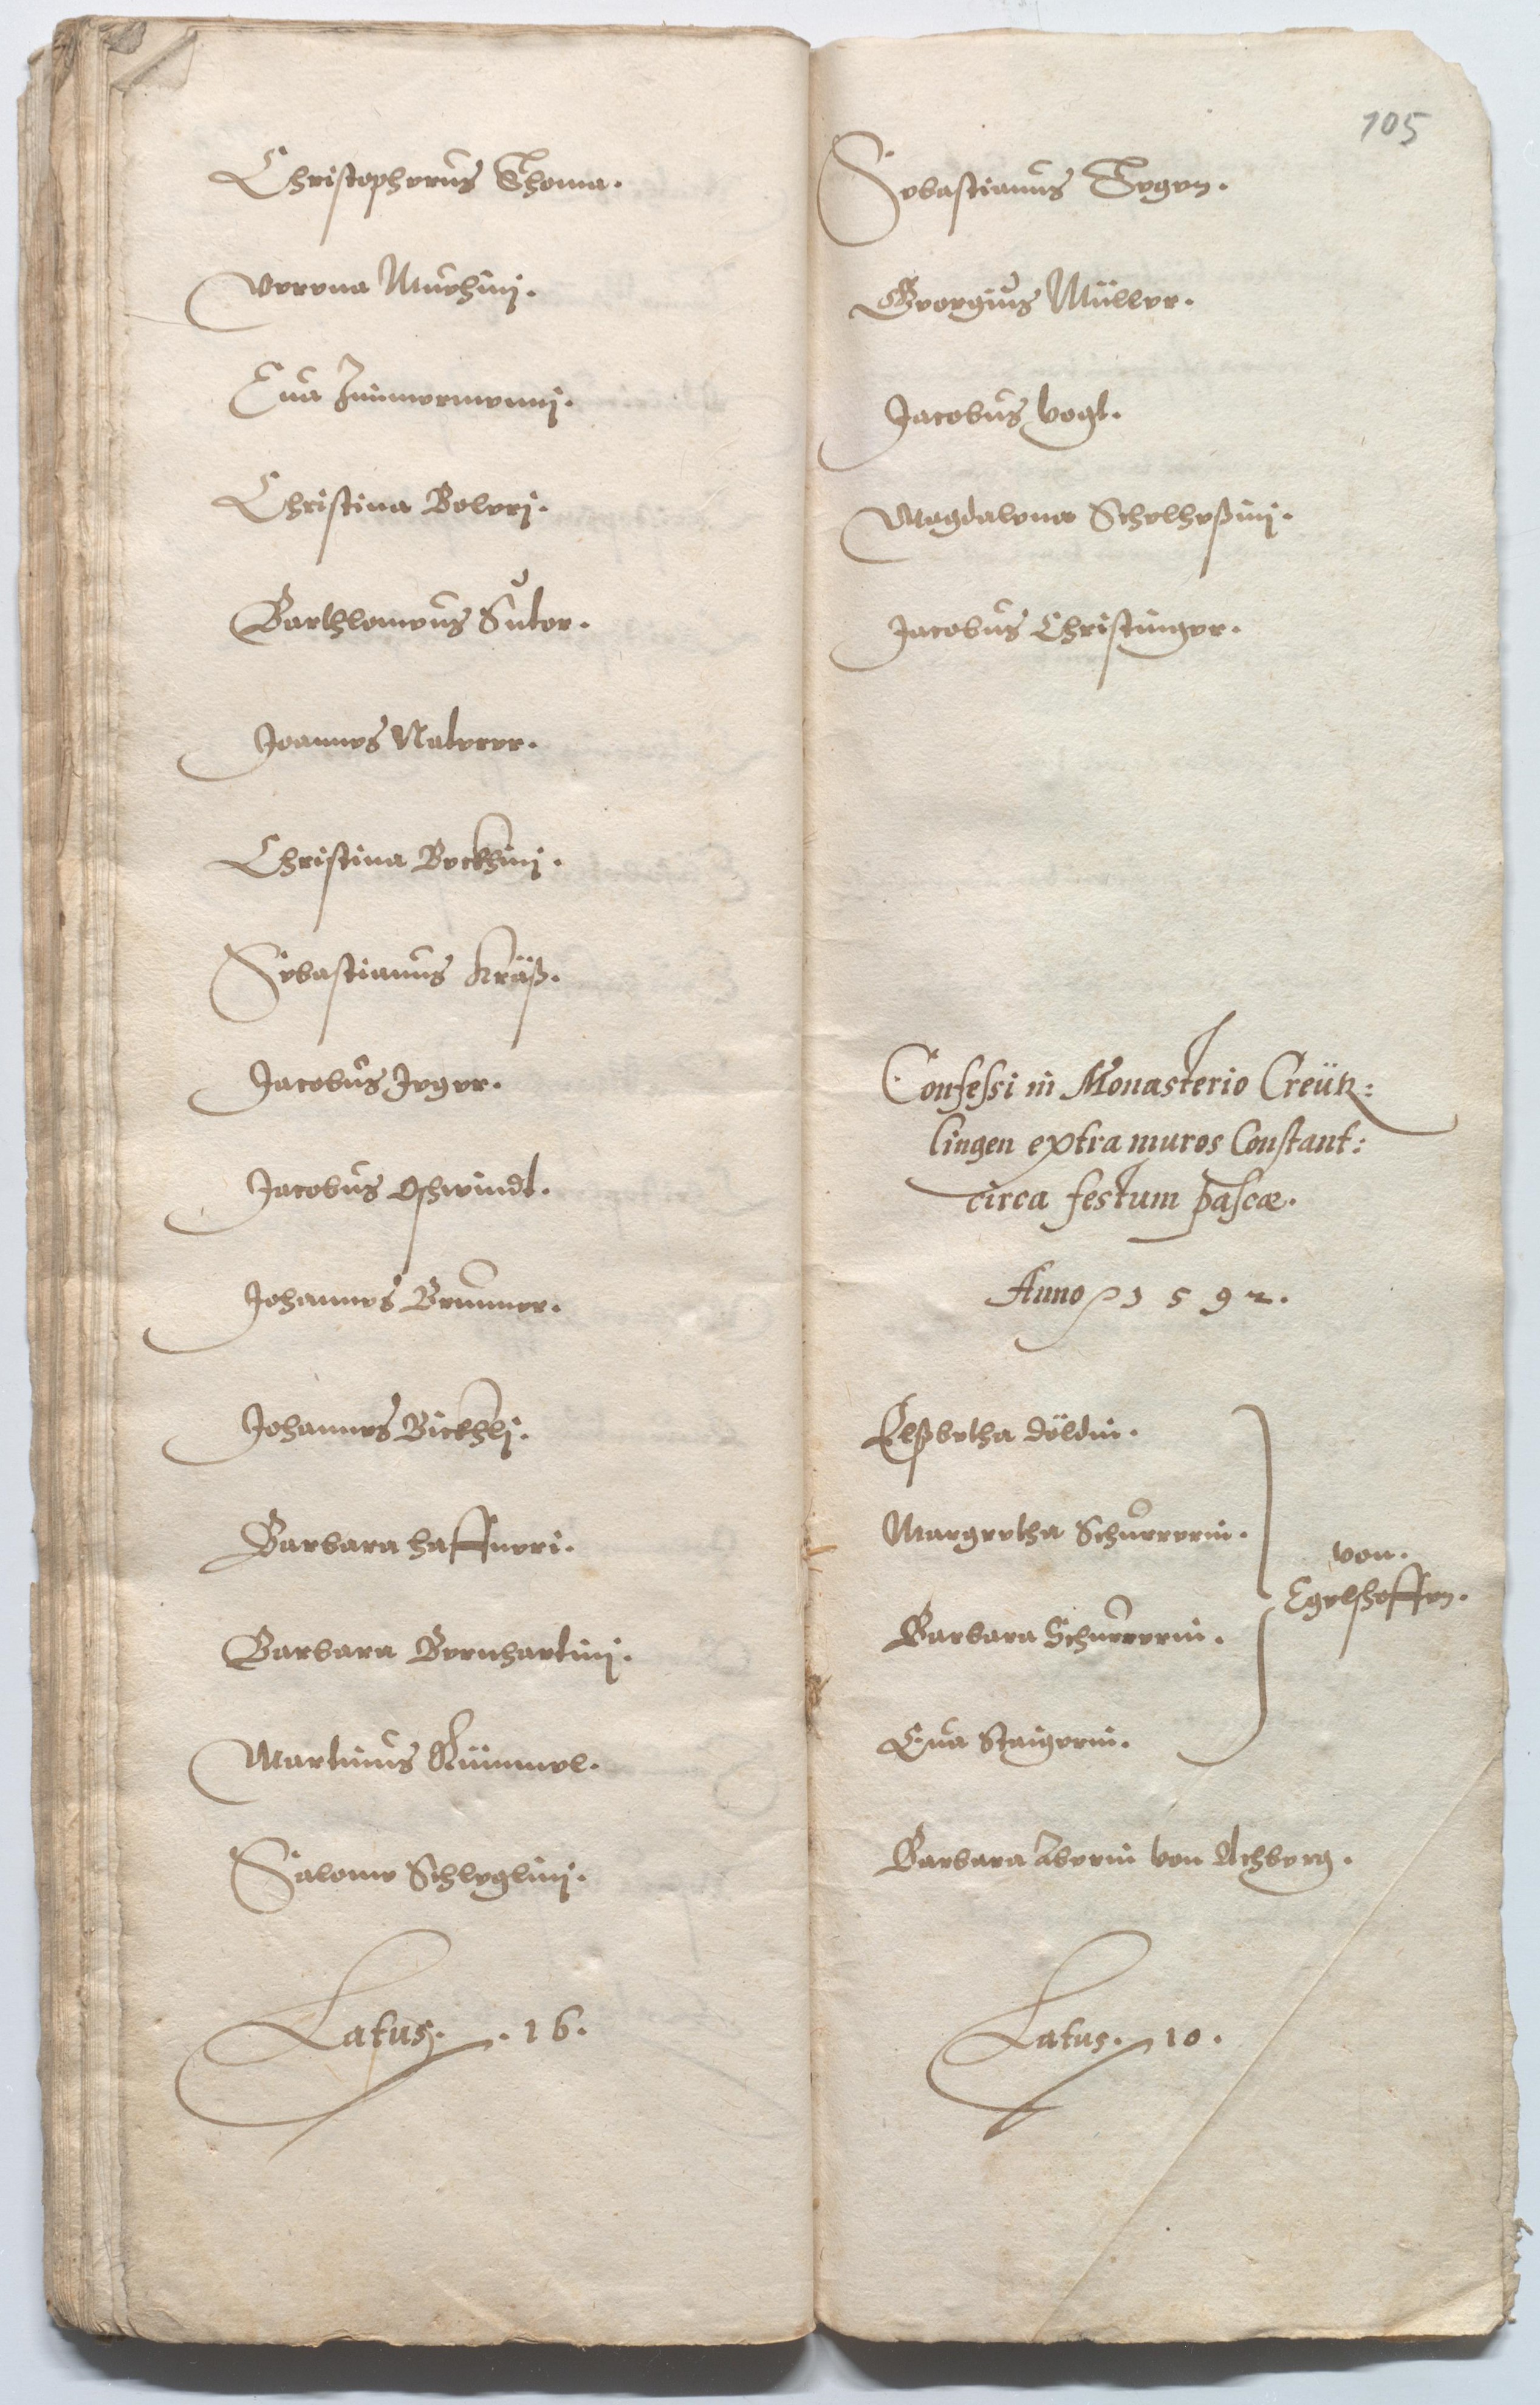 Christopherus Thoma.
Verena Muchinj.
Eua Zimmermennj.
Christina Bolerj.
Barthlomeus Suter.
Joannes Naterer.
Christina Beckhinj.
Sebastianus Kräß.
Jacobus Jeger.
Jacobus Gschwindt.
Johannes Brunner.
Johannes Bickhlj.
Barbara haffneri.
Barbara Bernhartinj.
Martinus Kümmel.
Salome Schleglinj.
Latus. .16.
105
Sebastianus Tegen.
Georgius Müller.
Jacobus Vogt.
Magdalena Schelheßinj.
Jacobus Christinger.
Confessi in Monasterio Creütz:
lingen extra muros Constant:
circa festum pascæ.
Anno 1592.
Elßbetha döldin.
Margretha Schurrerin.
von.
Egelshoffen.
Barbara Schurrerin.
Eua Staigerin.
Barbara von Achberg.
Latus. 10.